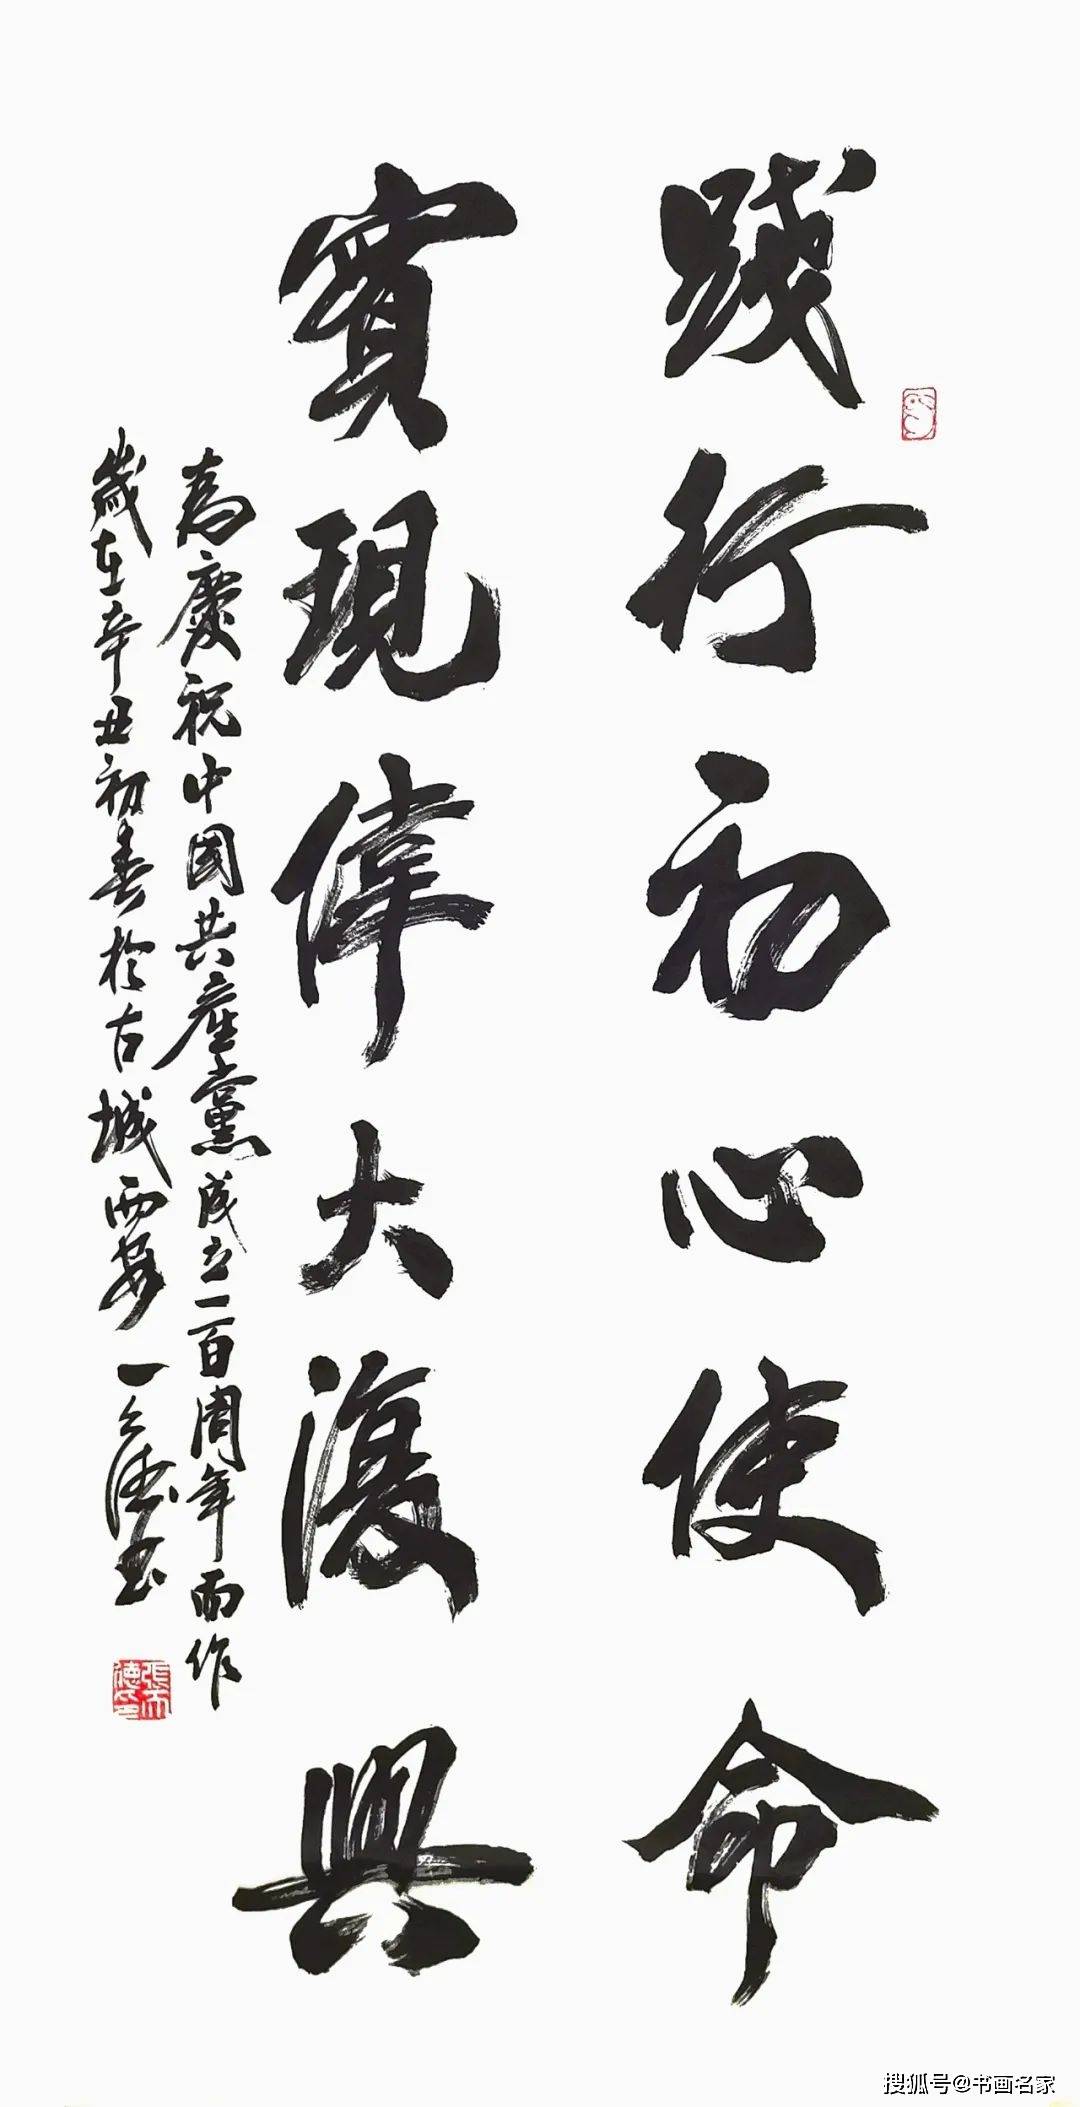 踐行初心使命
實現偉大復興
為慶祝中國共産黨成立一百周年而作
歲在辛丑初春於古城西安一公德書
搜狐号@书画名家